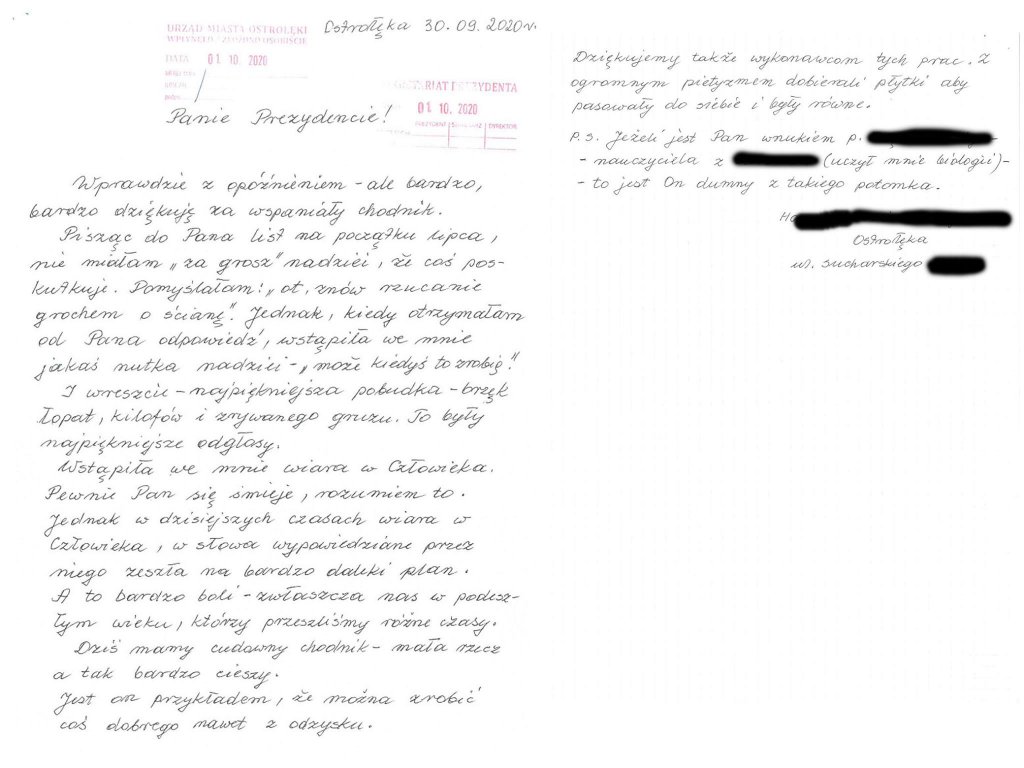 Ostrołęka 30.09.2020r.
URZĄD MIASTA OSTROŁĘKI
WPŁYNĘŁO / ZŁOŻONO OSOBIŚCIE
DATA 01 10. 2020
SEKRETARIAT PREZYDENTA
01 10. 2020
PREZYDENT DYREKTOR
Panie Prezydencie!
Wprawdzie z opóźnieniem - ale bardzo,
bardzo dziękuję za wspaniały chodnik.
Pisząc do Pana list na początku lipca,
nie miałam „za grosz" nadziei, że coś pos-
kutkuje. Pomyślałam: „ot, znów rzucanie
grochem o ścianę". Jednak, kiedy otrzymałam
od Pana odpowiedź, wstąpiła we mnie
jakaś nutka nadziei - „może kiedyś to zrobią!"
I wreszcie - najpiękniejsza pobudka - brzęk
łopat, kilofów i zrywanego gruzu. To były
najpiękniejsze odgłosy.
Wstąpiła we mnie wiara w Człowieka.
Pewnie Pan się śmieje, rozumiem to.
Jednak w dzisiejszych czasach wiara w
Człowieka, w słowa wypowiedziane przez
niego zeszła na bardzo daleki plan.
A to bardzo boli - zwłaszcza nas w podesz-
łym wieku, którzy przeszliśmy różne czasy.
Dziś mamy cudowny chodnik - mała rzecz
a tak bardzo cieszy.
Jest on przykładem, że można zrobić
coś dobrego nawet z odzysku.
Dziękujemy także wykonawcom tych prac. Z
ogromnym pietyzmem dobierali płytki aby
pasowały do siebie i były równe.
P.S. Jeżeli jest Pan wnukiem p.
- nauczyciela z (uczył mnie biologii) -
- to jest On dumny z takiego potomka.
Ostrołęka
ul. Sucharskiego